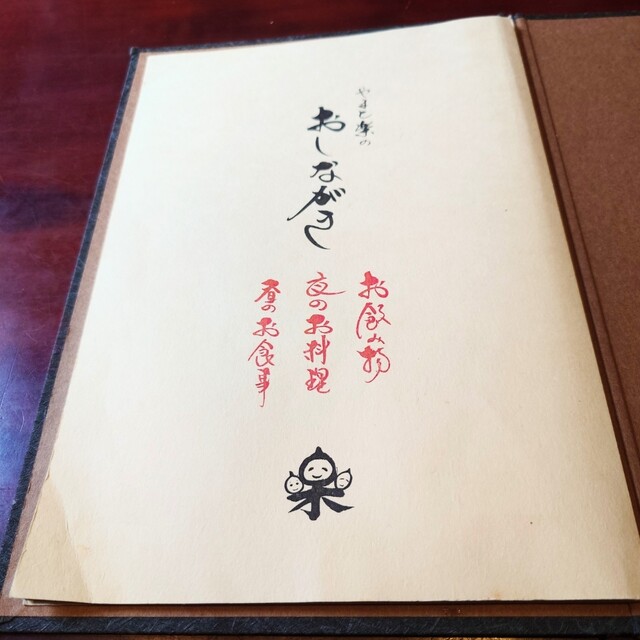 やまと楽の
おしながき
お飲み物
夜のお料理
昼のお食事